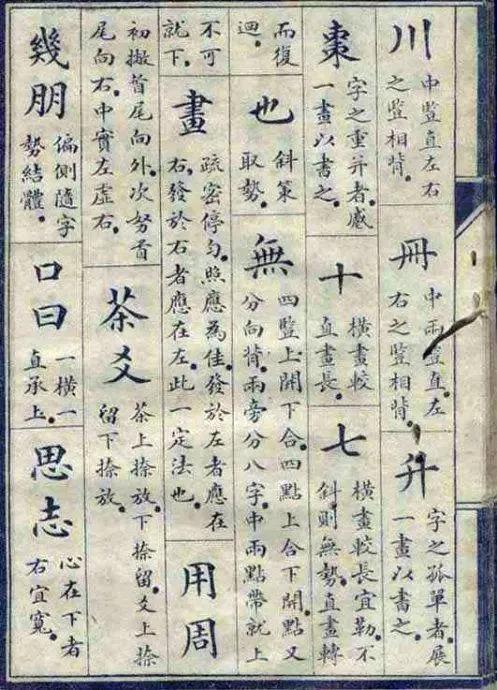 川
中豎直左右
之豎相背。
冊
中兩豎直左
右之豎相背。
升
字之孤單者展
一畫以書之。
棗
字之重并者蹙
一畫以書之。
十
橫畫較
直畫長。
七
橫畫較長宜勒。不
斜則無勢。直畫轉
而復
迴。
也
斜策
取勢。
無
四豎上開下合。四點上合下開。點又
分向背。兩旁分八字。中兩點帶就上
不可
就下。
畫
疏密停勻。照應為佳。發於左者應在
右。發於右者應在左。此一定法也。
用周
初撇首尾向外。次努首
尾向右。中實左虛右。
茶爻
茶上捺放。下捺留。爻上捺
留下捺放。
幾朋
偏側隨字
勢結體。
口曰
一橫一
直承上。
思志
心在下者
右宜寬。